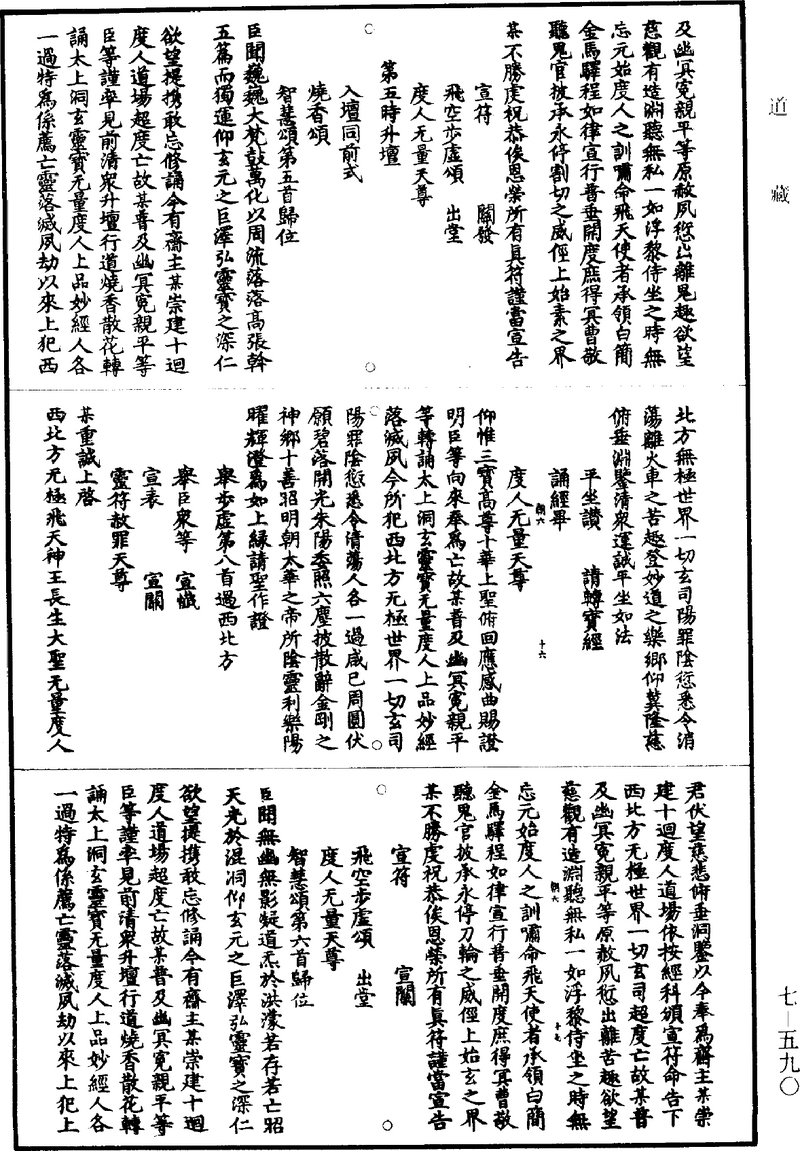 道藏
七—五九〇
及幽冥寃親平等原赦夙愆出離鬼趣欲望
慈觀有造淵聽無私一如浮黎侍坐之時無
忘元始度人之訓嘯命飛天使者承領白簡
金馬驛程如律宣行普垂開度庶得冥曹敬
聽鬼官披承永停割切之威徑上始素之界
某不勝虔祝恭俟恩榮所有真符謹當宣告
宣符　關發
飛空步虛頌　出堂
度人无量天尊
第五時升壇
入壇同前式
燒香頌
智慧頌第五首歸位
臣聞巍巍大梵鼓萬化以周流落落高張斡
五篇而獨運仰玄元之巨澤弘靈寶之深仁
欲望提携敢忘修誦今有齋主某崇建十迴
度人道場超度亡故某普及幽冥寃親平等
臣等謹率見前清衆升壇行道燒香散花轉
誦太上洞玄靈寶无量度人上品妙經人各
一過特為係薦亡靈落滅夙劫以來上犯西
北方無極世界一切玄司陽罪陰愆悉令消
蕩離火車之苦趣登妙道之樂鄉仰冀隆慈
俯垂淵鑒清衆運誠平坐如法
平坐讃　請轉寶經
誦經畢
度人无量天尊
仰惟三寶高尊十華上聖俯回應感曲賜證
明臣等向來奉為亡故某普及幽冥寃親平
等轉誦太上洞玄靈寶无量度人上品妙經
落滅夙今所犯西北方无極世界一切玄司
陽罪陰愆悉令清蕩人各一過咸已周圓伏
願碧落開光朱陽委照六塵披散辭金剛之
神鄉十善昭明朝太華之帝所陰靈利樂陽
曜輝澄為如上緣請聖作證
舉步虛第八首過西北方
舉臣衆等　宣懺
宣表　宣關
靈符赦罪天尊
某重誠上啓
西北方无極飛天神王長生大聖无量度人
君伏望慈悲俯垂洞鑒以今奉為齋主某崇
建十迴度人道場依按經科頒宣符命告下
西北方无極世界一切玄司超度亡故某普
及幽冥寃親平等原赦夙愆出離苦趣欲望
慈觀有造淵聽無私一如浮黎侍坐之時無
忘元始度人之訓嘯命飛天使者承領白簡
金馬驛程如律宣行普垂開度庶得冥曹敬
聽鬼官披承永停刀輪之威徑上始玄之界
某不勝虔祝恭俟恩榮所有眞符謹當宣告
宣符　宣關
飛空步虛頌　出堂
度人无量天尊
智慧頌第六首歸位
臣聞無幽無影凝道炁於洪濛若存若亡昭
天光於混洞仰玄元之巨澤弘靈寶之深仁
欲望提携敢忘修誦今有齋主某崇建十迴
度人道場超度亡故某普及幽冥寃親平等
臣等謹率見前清衆升壇行道燒香散花轉
誦太上洞玄靈寶无量度人上品妙經人各
一過特為係薦亡靈落滅夙劫以來上犯上